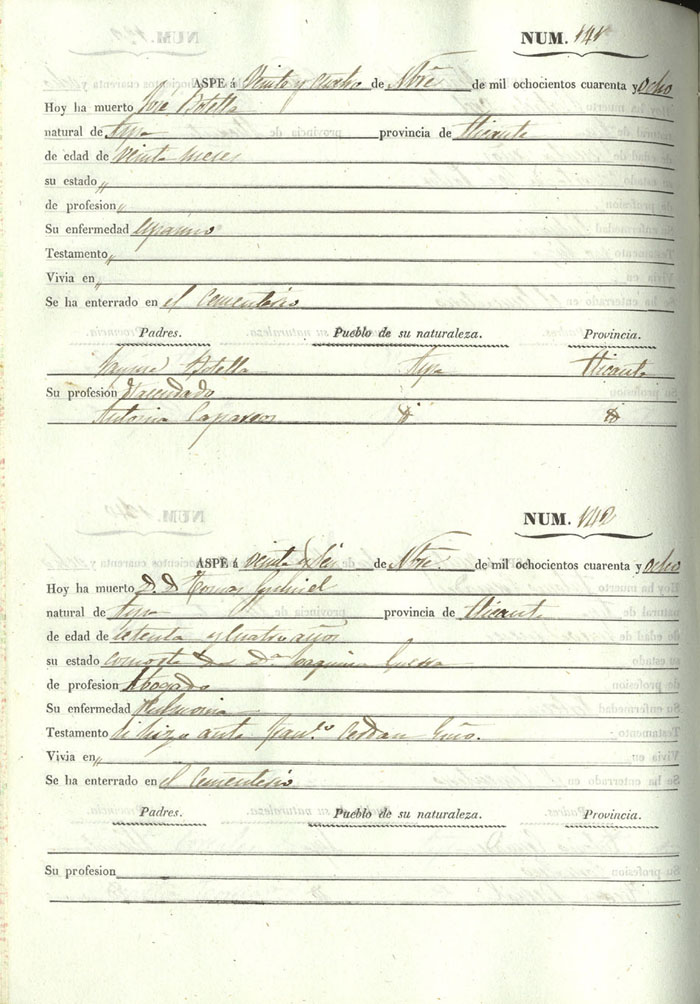 NUM. 141
ASPE á Veinte y cuatro de Nbre de mil ochocientos cuarenta y ocho
Hoy ha muerto José Botella
natural de Aspe provincia de Alicante
de edad de veinte meses
su estado „
de profesion „
Su enfermedad espasmo
Testamento „
Vivia en „
Se ha enterrado en el Cementerio
Padres. Pueblo de su naturaleza. Provincia.
Botella Aspe Alicante
Su profesion Hacendado
Antonia Caparros
NUM. 142
ASPE á veinte y seis de Nbre de mil ochocientos cuarenta y ocho
Hoy ha muerto D. D. Tomas Gubriel
natural de Aspe provincia de Alicante
de edad de setenta y cuatro años
su estado consorte de Da. Joaquina
de profesion Abogado
Su enfermedad Pulmonia
Testamento ante Franco. Cerdan Esno.
Vivia en „
Se ha enterrado en el Cementerio
Padres. Pueblo de su naturaleza. Provincia.
Su profesion